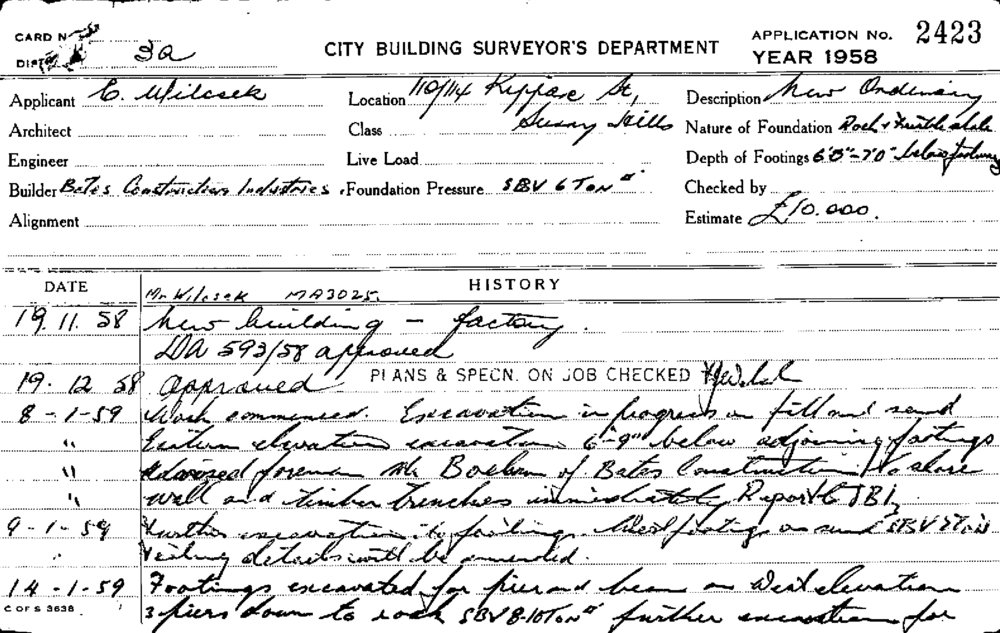 CARD N
3a
CITY BUILDING SURVEYOR'S DEPARTMENT
APPLICATION No. 2423
YEAR 1958
Applicant C. Wilcsek
Location 110/114 Kippax St,
Description New Ordinary
Architect
Class Surry Hills
Nature of Foundation Rock +
Engineer
Live Load
Depth of Footings 6'0"-7'0" below
Builder Bates Construction Industries.
Foundation Pressure SBV 6 TON
Checked by
Alignment
Estimate £10.000.
DATE
HISTORY
Mr Wilcsek MA3025.
19.11.58 New building - factory.
DA 593/58 approved
19.12.58 approved PLANS & SPECN. ON JOB CHECKED
8-1-59 Work commenced. Excavation in progress on fill and sand
" Eastern elevation excavation 6'-9" below adjoining footings
" Advised foreman Mr of Bates Construction to shore
" wall and timber trenches immediately. Report to
9-1-59 Further excavation to footing. West footing on sand SBV 2 TON
" details will be amended.
14-1-59 Footings excavated for pier and beam on West elevation
C OF S 3638
3 piers down to rock SBV 8-10 TON further excavation for